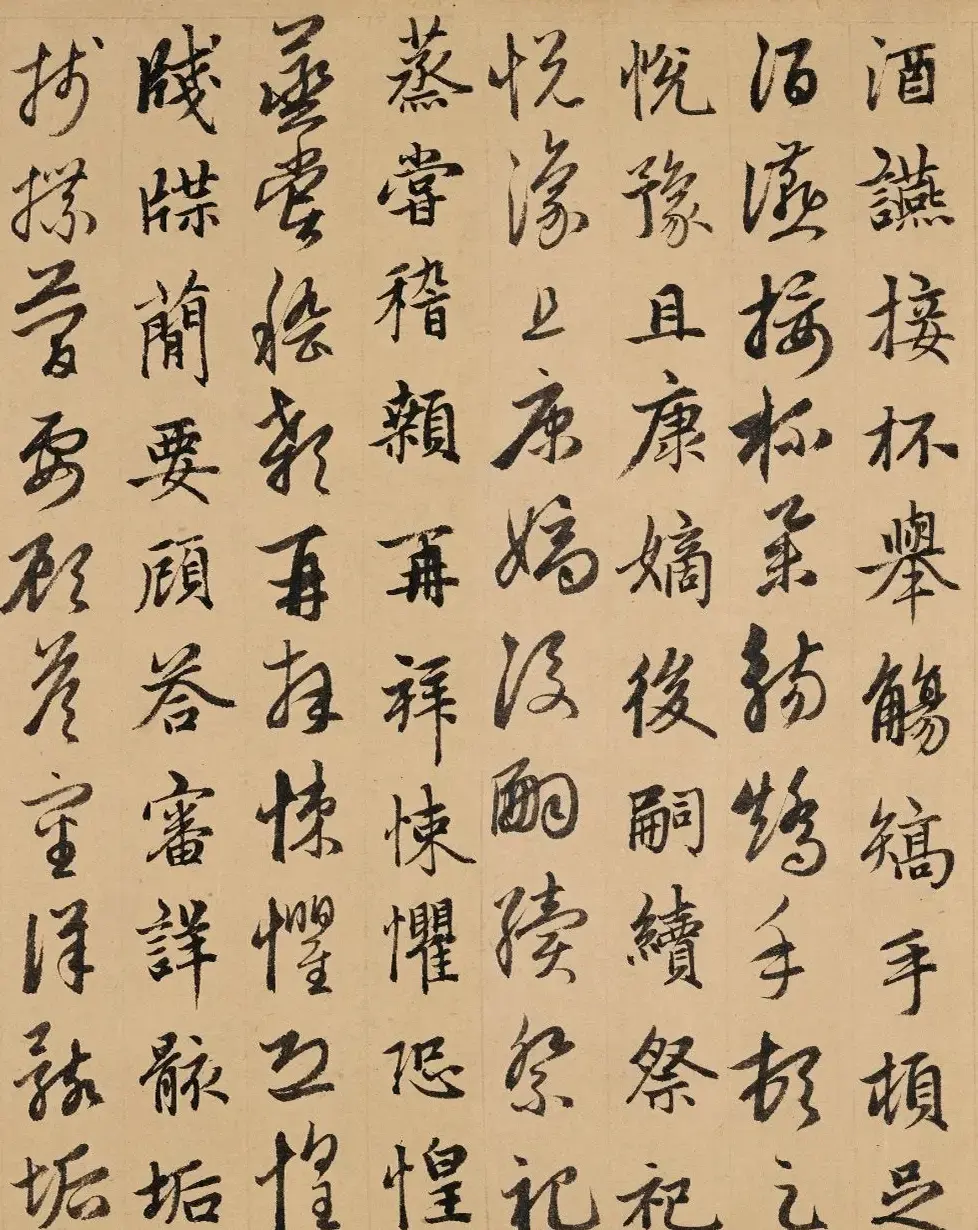 酒讌接杯舉觴矯手頓足
酒讌接杯舉觴矯手頓足
悅豫且康嫡後嗣續祭祀
悅豫且康嫡後嗣續祭祀
蒸嘗稽顙再拜悚懼恐惶
蒸嘗稽顙再拜悚懼恐惶
牋牒簡要顧答審詳骸垢
牋牒簡要顧答審詳骸垢